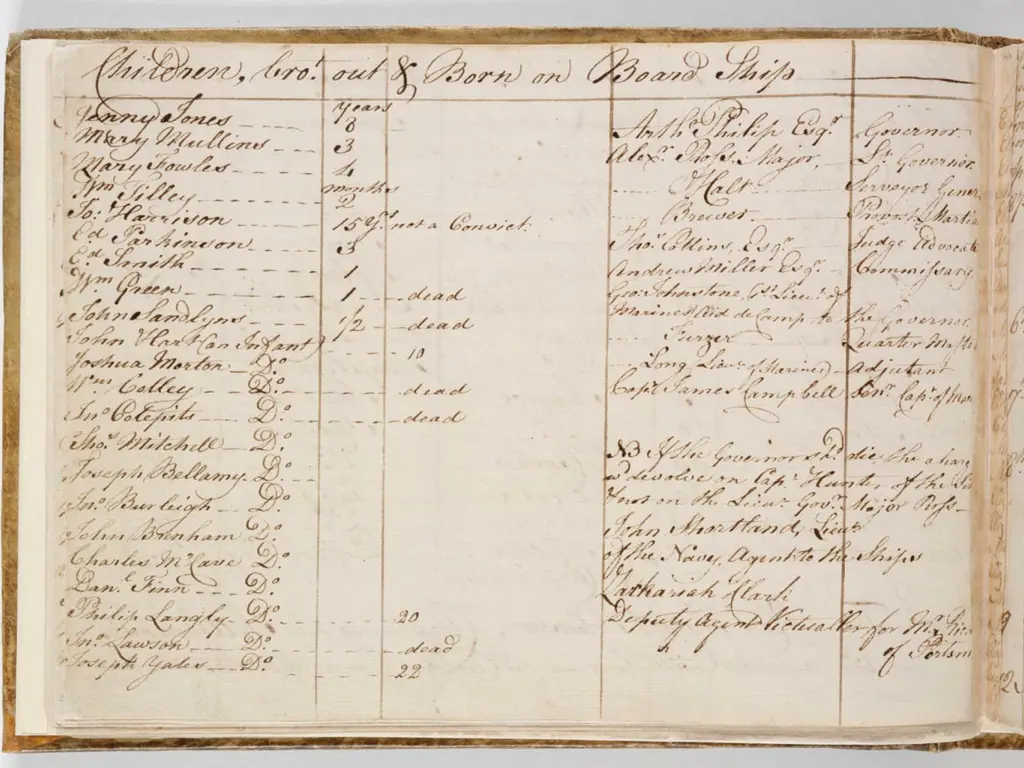 Children, bro.t out & Born on Board Ship
years
Jenny Jones 8
Mary Mullins 3
Mary Fowles 4
months
Wm Tilley 2
Jo: Harrison 15 Yrs not a Convict.
Ed Parkinson 3
Ed Smith 1
Wm Green 1 dead
John Sandlyns 1/2 dead
John Hart (an Infant)
Joshua Morton Do 10
Wm Colley Do dead
Jno Colepits Do dead
Thos Mitchell Do
Joseph Bellamy Do
Jno Burleigh Do
John Bonham Do
Charles McCave Do
Danl Finn Do
Philip Langly Do 20
Jno Lawson Do dead
Joseph Yates Do 22
Arthr Philip Esqr Governor
Alexr Ross. Major, Lt Governor
Halt Serveyor Gener
Brewer Provost Martia
Thos Collins, Esqr Judge Advocate
Andrew Miller Esqr Commissary
Geo: Johnstone, 1st Lieut of
Marines Aid de Camp to the Governor
Furzer Quarter Maste
Long (Lieut of Marines) Adjutant
Capt James Campbell Senr Capt of Ma
NB If the Governor shd die the char
wd devolve on Capt Hunter of the Sir
& not on the Lieut Govr Major Ross
John Shortland, Lieut
of the Navy, Agent to the Ships
Zachariah Clark
Deputy Agent Victualler for Mr Ric
of Portsm